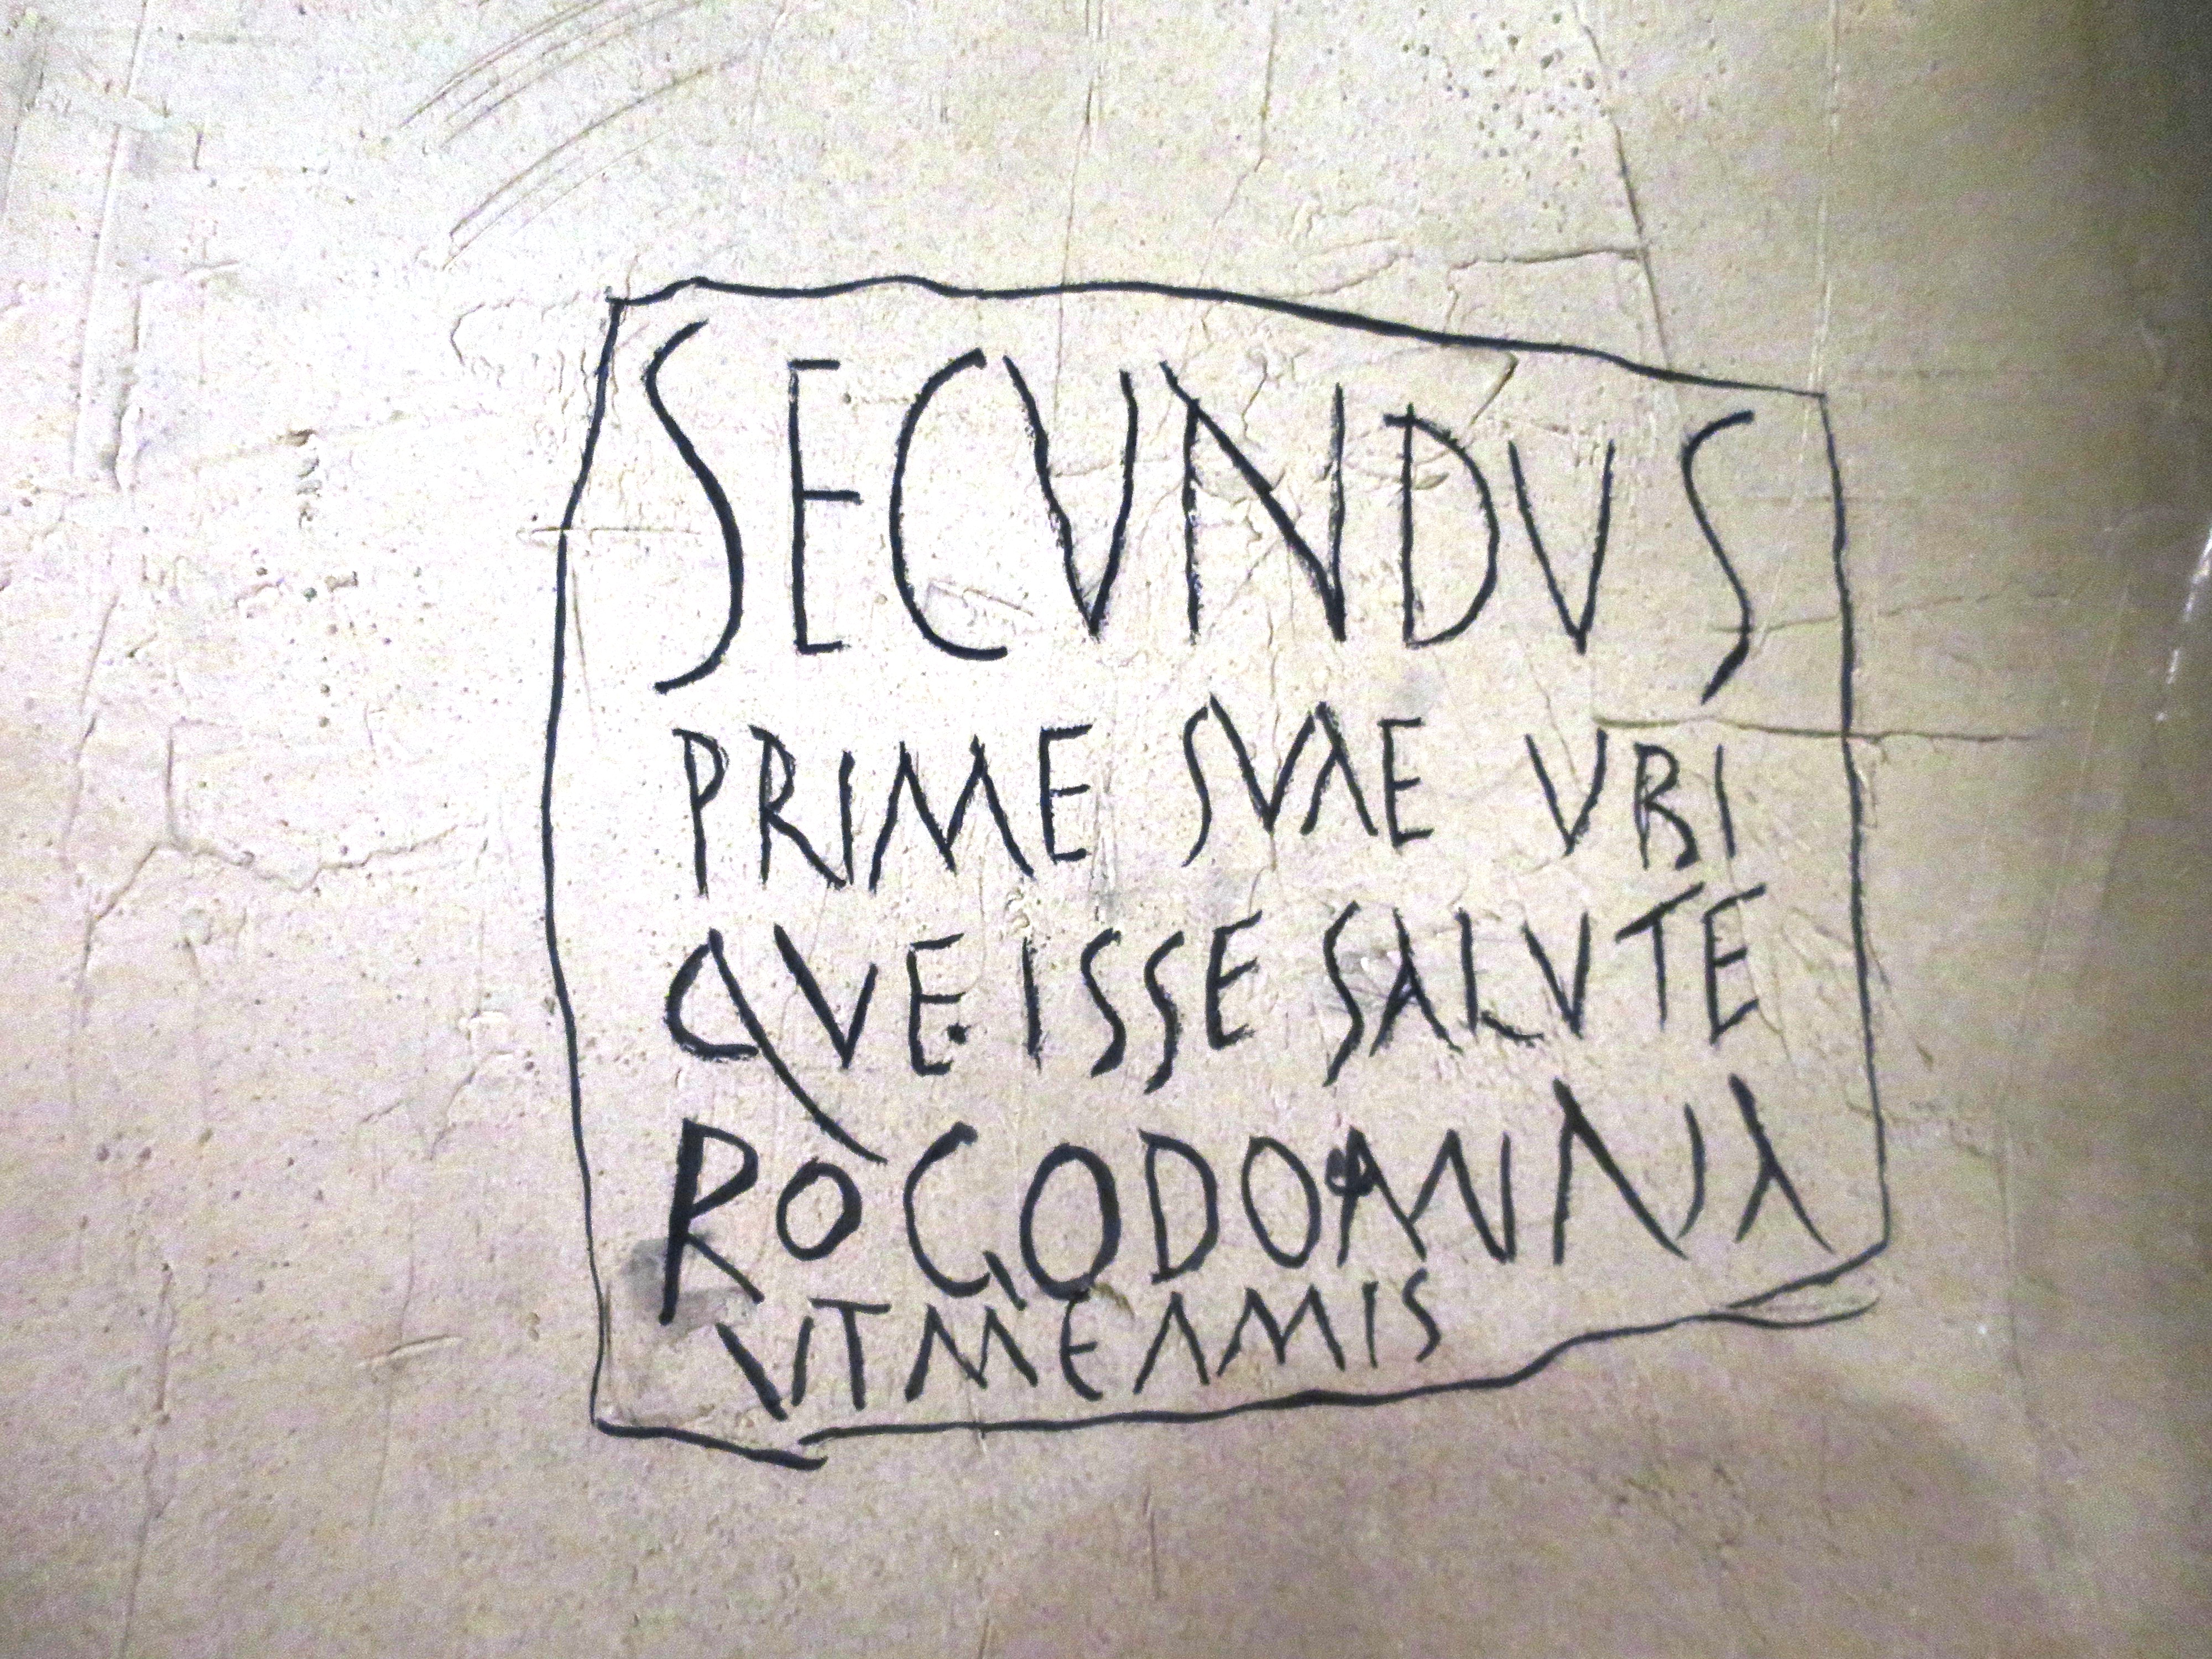 SECVNDVS
PRIME SVAE VBI
QVE·ISSE SALVTE
ROGO DOMINA
VT ME AMIS